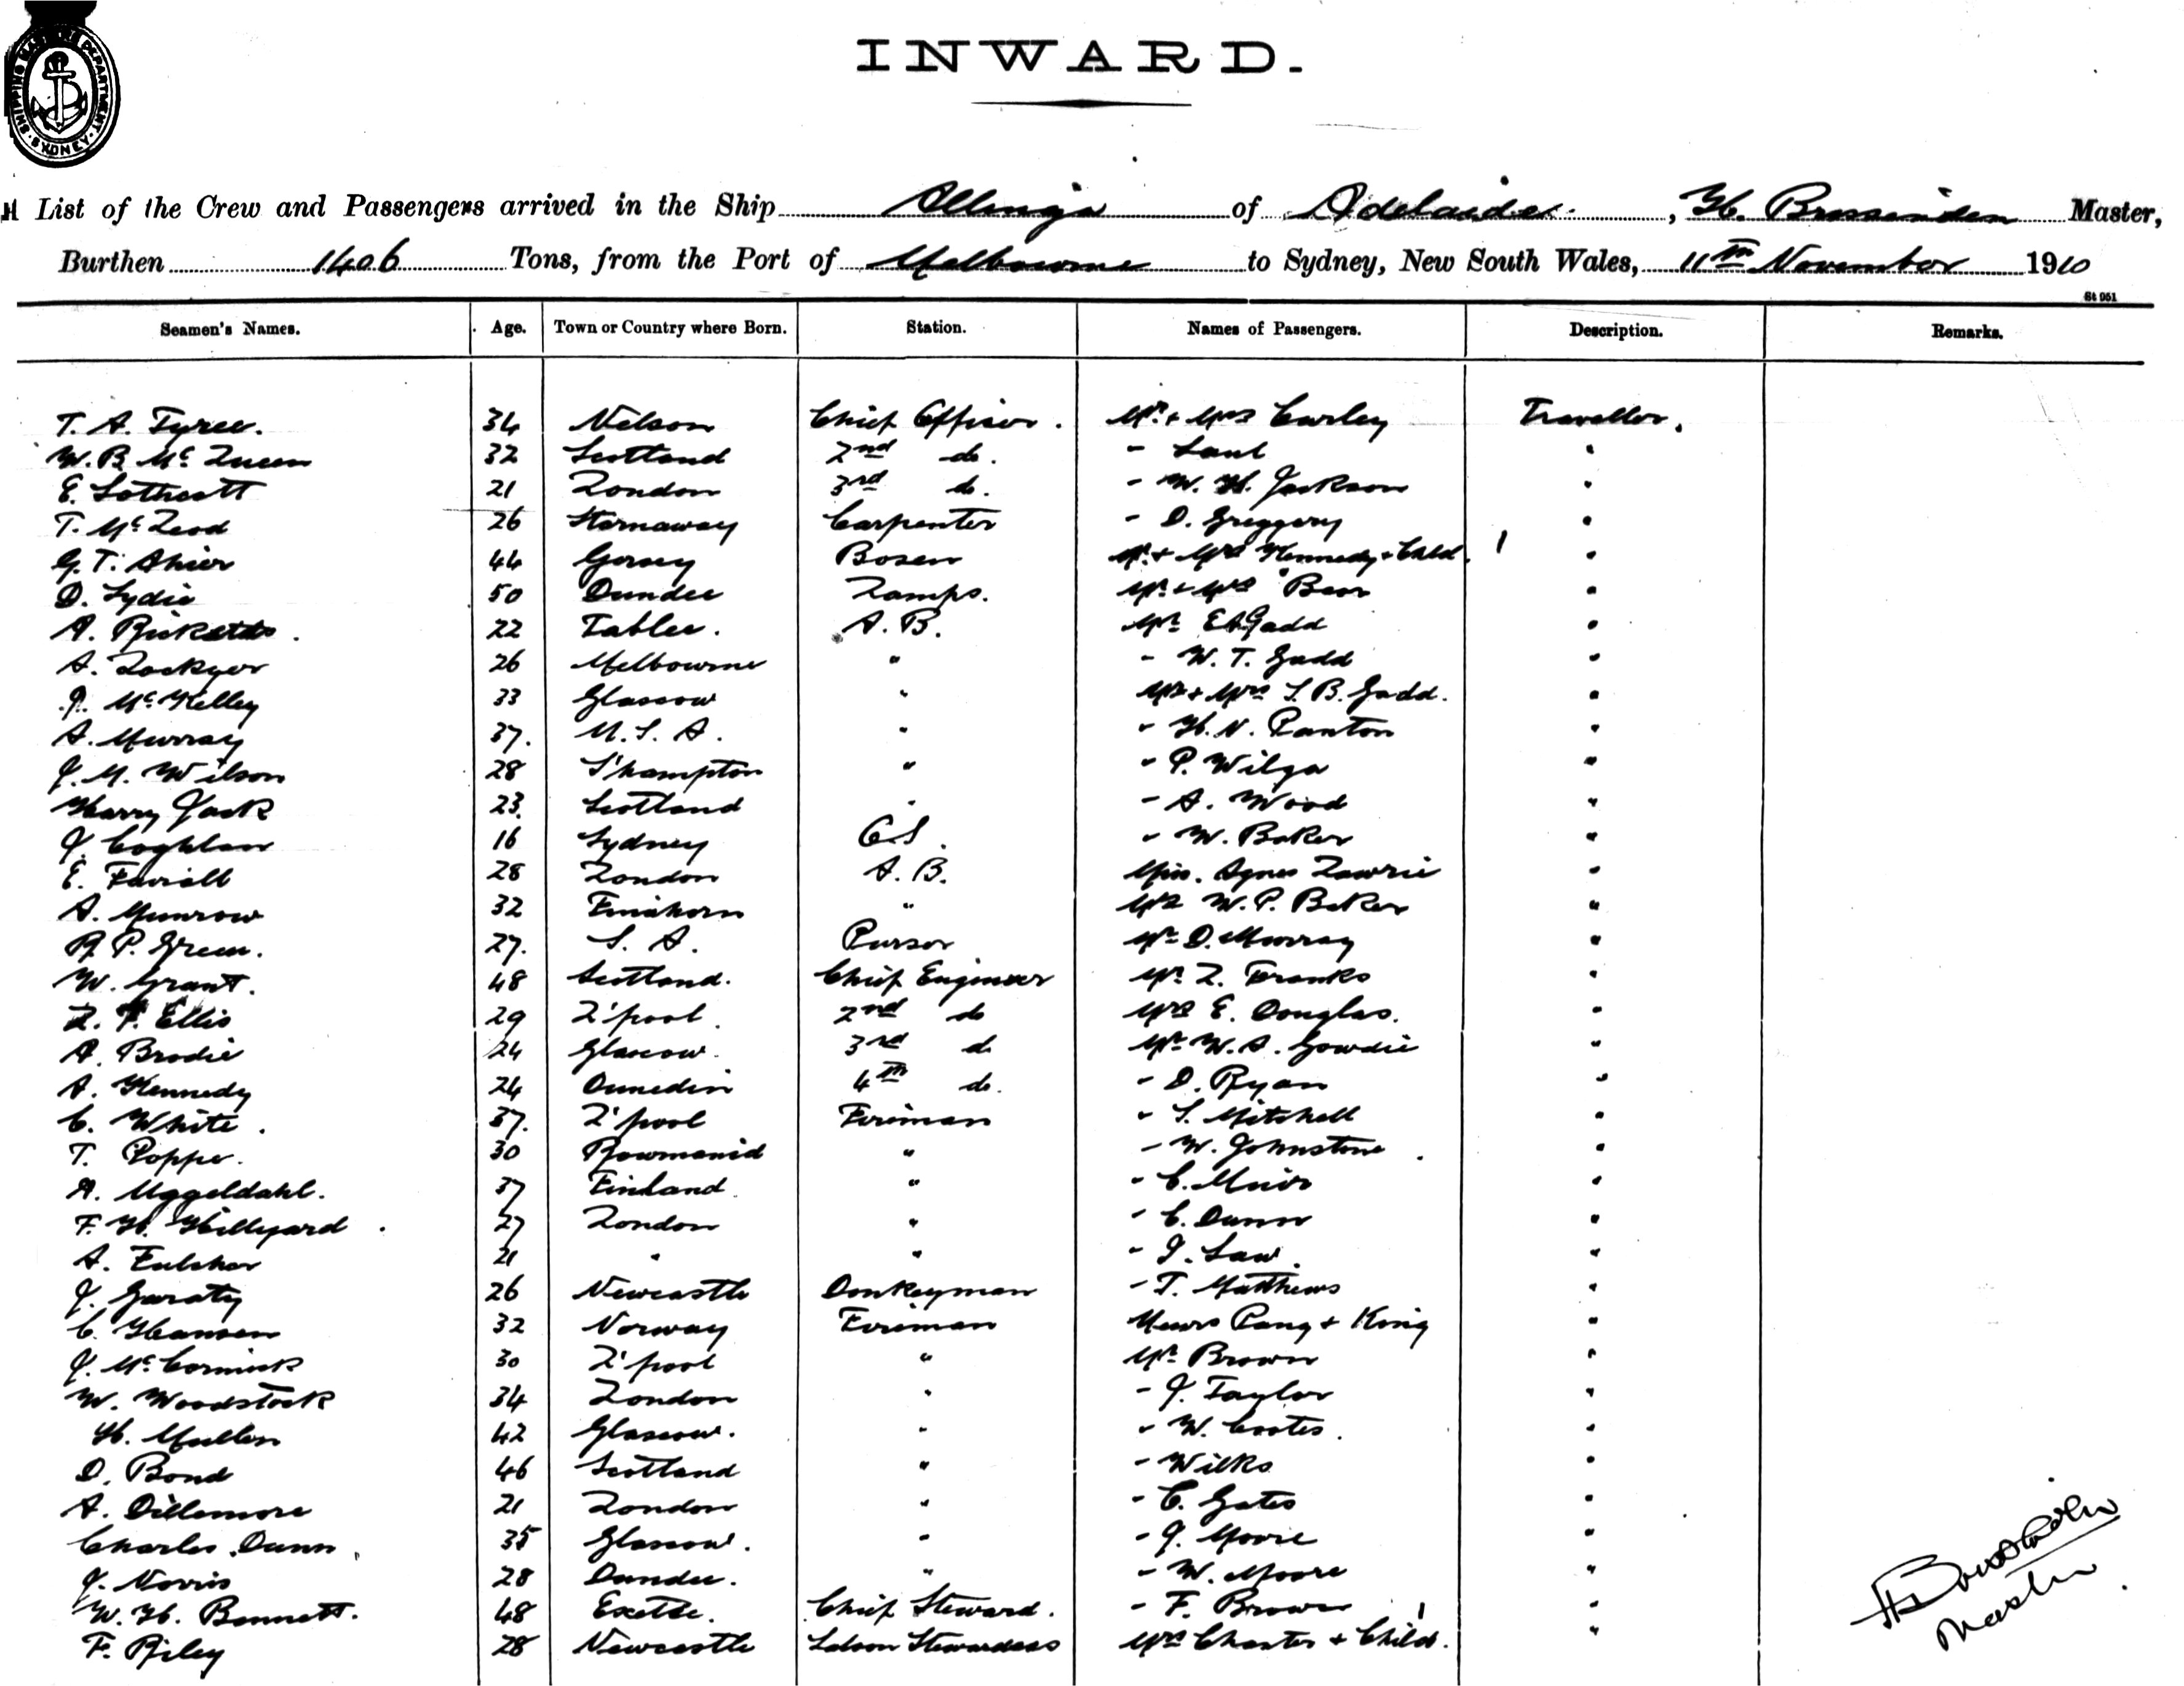 SHIPPING MASTERS DEPARTMENT. SYDNEY
INWARD.
A List of the Crew and Passengers arrived in the Ship Allinga of Adelaide, H. Brassinden Master,
Burthen 1406 Tons, from the Port of Melbourne to Sydney, New South Wales, 11th November 1910
St 951
Seamen's Names. Age. Town or Country where Born. Station. Names of Passengers. Description. Remarks.
T. A. Tyree. 34 Nelson Chief Officer. Mr. & Mrs Curley Traveller.
W. B. McQueen 32 Scotland 2nd do. - Saul "
E. Sothcott 21 London 3rd do. - W. H. Jackson "
T. McLeod 26 Stornaway Carpenter - D. Greggery "
G. T. Ahier 44 Gersey Bosen Mr. & Mrs Kennedy & Child. 1 "
D. Lydie 50 Dundee Lamps. Mr & Mrs Beor "
A. Ricketts. 22 Tablee. A. B. Mr. E A Gadd "
A. Lockyer 26 Melbourne " - W. T. Gadd "
J. McKelley 33 Glassow " Mr & Mrs S. B. Gadd. "
A. Murray 37. U. S. A. " - H. N. Panton "
J. M. Wilson 28 S'hampton " - P. Wilga "
Harry Jack 23. Scotland " - A. Wood "
J. Coghlan 16 Sydney O.S. - W. Baker "
E. Farrall 28 London A. B. Miss. Agnes Lawrie "
A. Munrow 32 Finshorn " Mr W. P. Baker "
R. P. Green. 27. S. A. Purser Mr D. Murray "
W. Grant. 48 Scotland. Chief Engineer Mr. L. Franks "
L. F. Ellis 29 L'pool. 2nd do Mrs E. Douglas. "
A. Brodie 24 Glascow. 3rd d. Mr W. A. Gowdie "
A. Kennedy 24 Dunedin 4th do. - D. Ryan "
C. White. 37. L'pool Fireman - S. Mitchell "
T. Poppe. 30 Rowmanid " - W. Johnstone. "
A. Uggeldahl. 37 Finland. " - C. Muir "
F. H. Hillyard. 27 London " - C. Dunn "
A. Fulcher 21 " " - J. Law. "
J. Garaty 26 Newcastle Donkeyman - T. Matthews "
C. Hansen 32 Norway Fireman Messrs Pang & King "
J. McCormick 30 L'pool " Mr. Brown "
W. Woodstock 34 London " - J. Taylor "
H. Mullen 42 Glascow. " - W. Cootes. "
D. Bond 46 Scotland " - Wilks "
A. Dillemore 21 London " - C. Gates "
Charles Dunn, 35 Glascow. " - J. Moore "
J. Norris 28 Dundee. " - W. Moore "
W. H. Bennett. 48 Exette. Chief Steward. - F. Brown "
F. Riley 28 Newcastle Saloon Stewardess Mrs Charter & Child. 1 "
Master